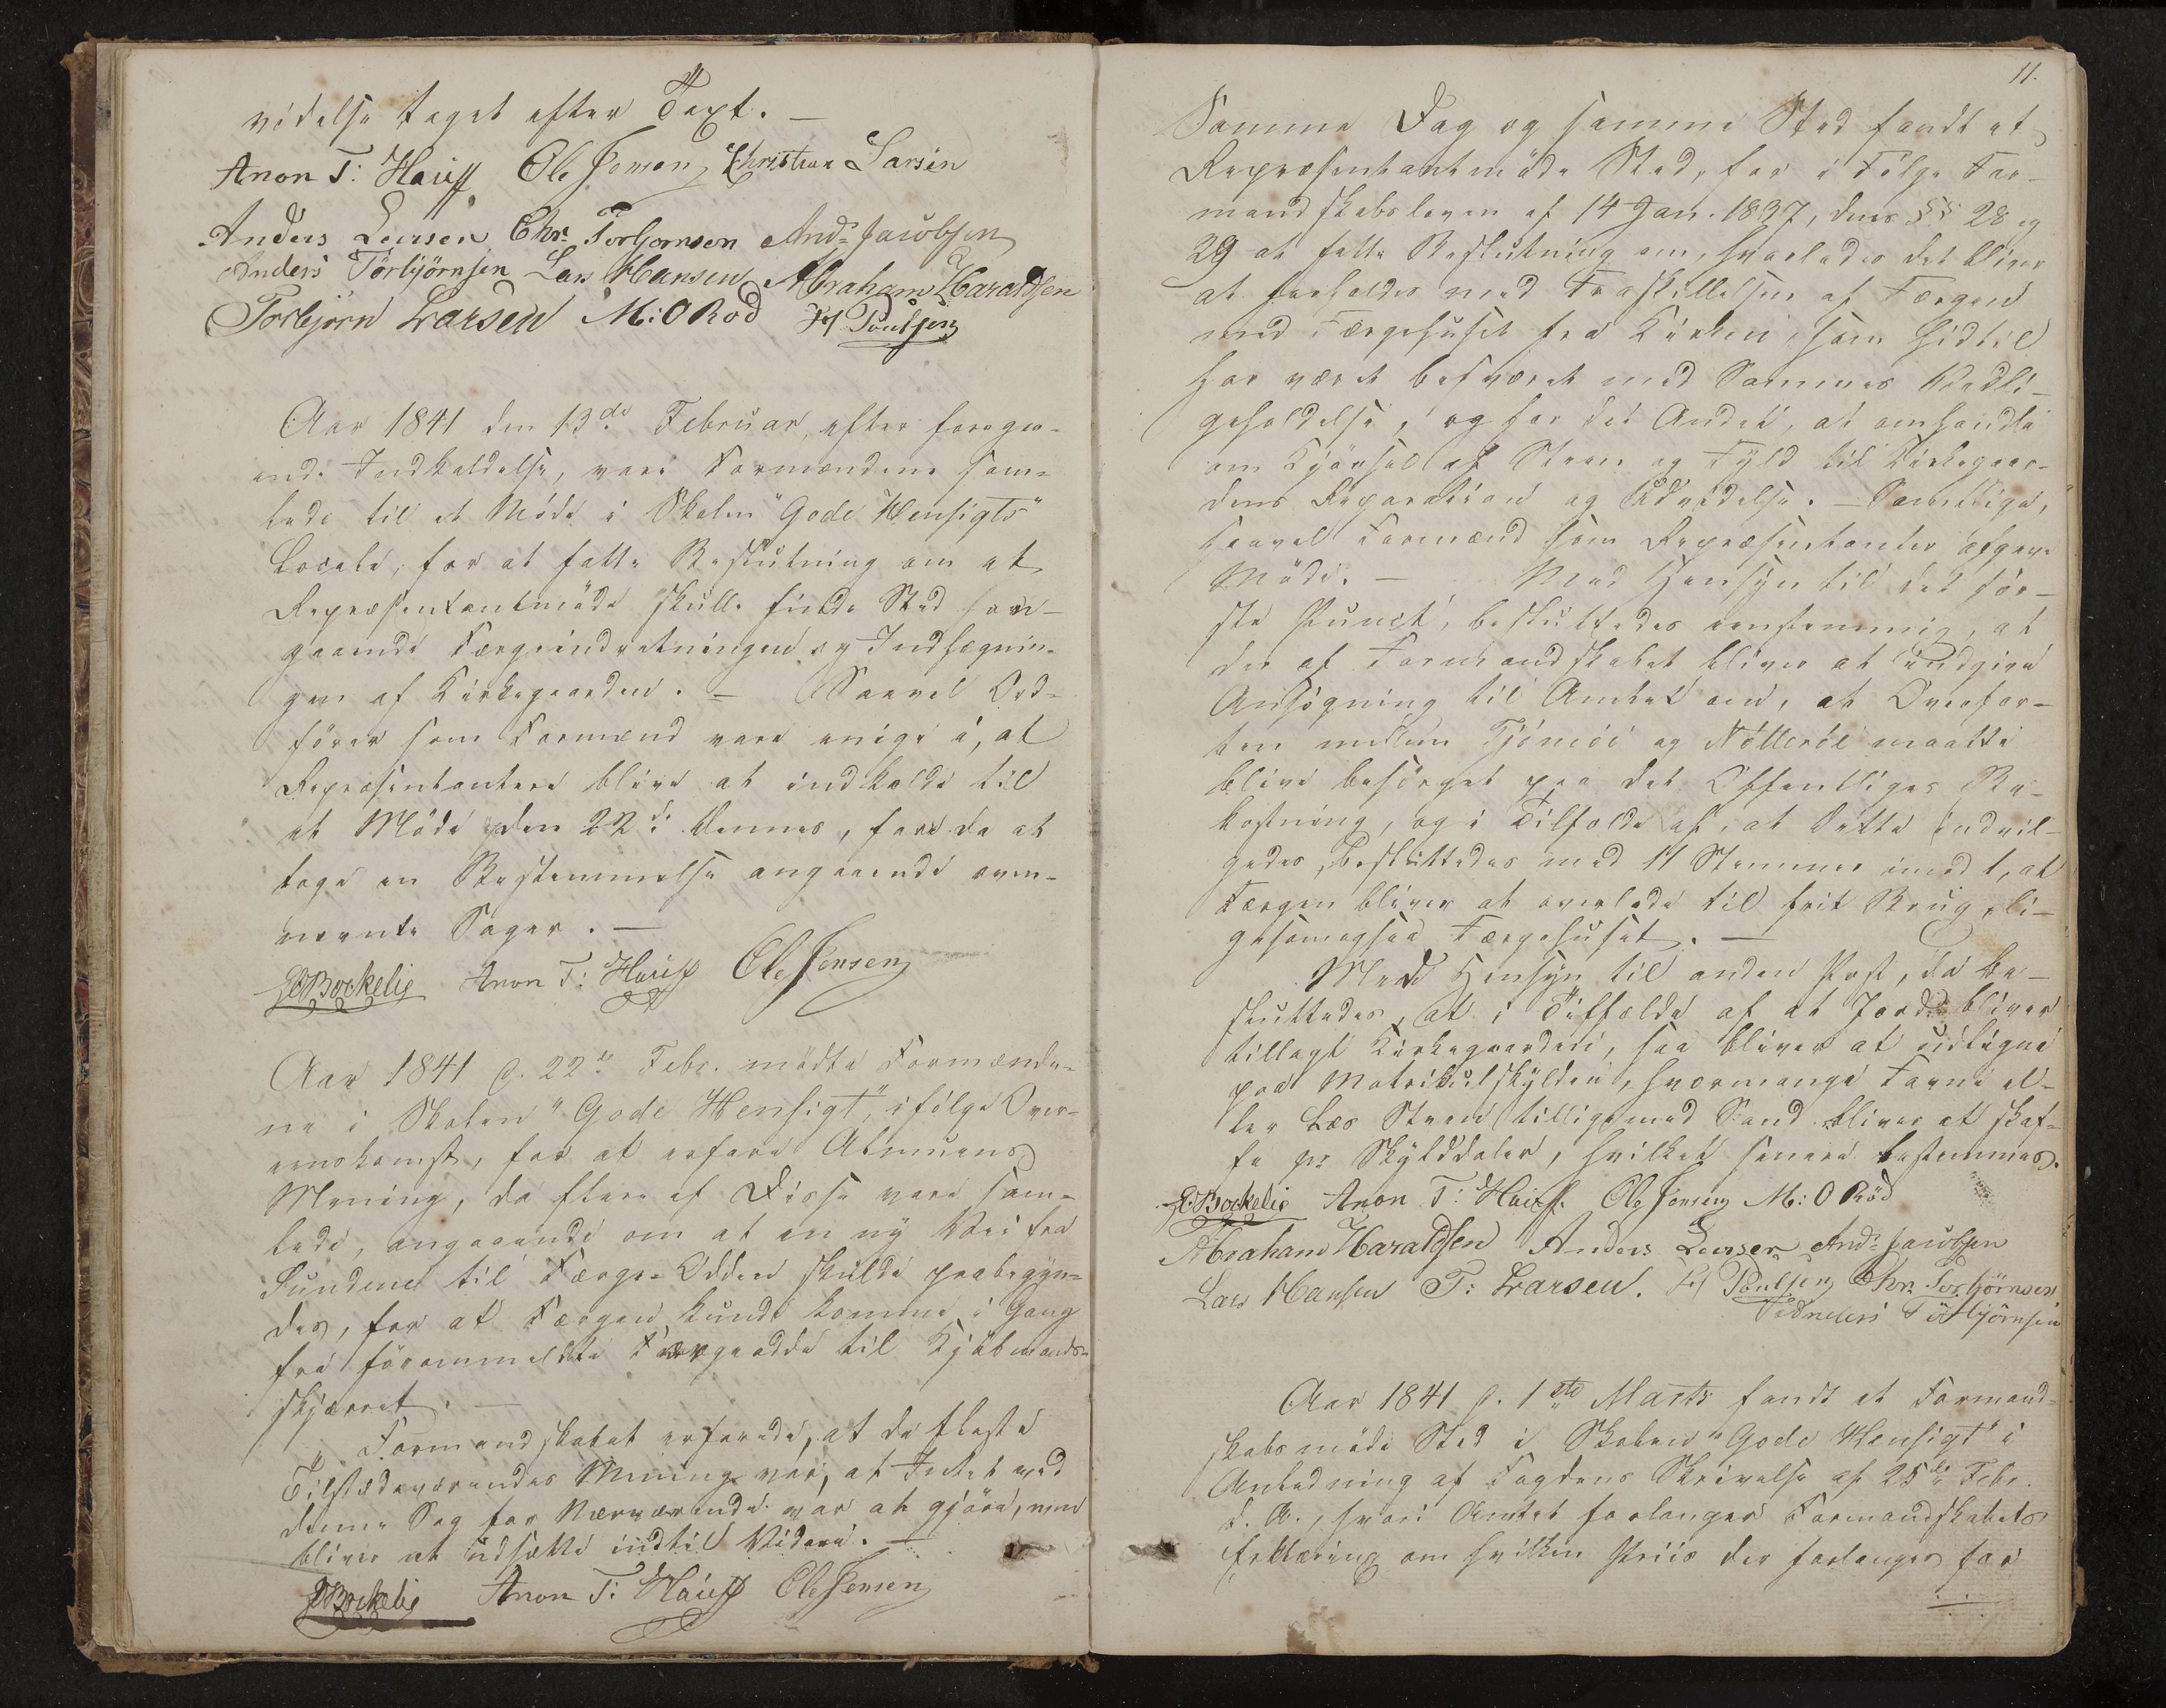 videlse taget efter Text. —
Anon T: Hauff Ole Jensen Christian Larsen
Anders Larsen Chr. Torbjornsen And: Jacobsen
Anders Törbjörnsen Lars Hansen Abraham Haraldsen
Torbjörn Larsen M: O Röd H Poulsen
Aar 1841 den 13de Februar, efter foregaa-
ende Indkaldelse, vare Formændene sam-
lede til et Möde i Skolen "Gode Hensigts"
Locale, for at fatte Beslutning om et
Repræsentantmöde skulle finde Sted an-
gaaende Færgeindretningen og Indhegnin-
gen af Kirkegaarden. — Saavel Ord-
förer som Formænd vare enige i, at
Repræsentantere blive at indkalde til
et Möde den 22de dennes, for da at
tage en Bestemmelse angaaende oven-
nævnte Sager. —
Bockelie Anon T: Hauff Ole Jensen
Aar 1841 d. 22de Febr. mödte Formænde-
ne i Skolen "Gode Hensigt", ifölge Over-
eenskomst, for at erfare Almuens
Mening, da flere af Disse vare sam-
lede, angaaende om at en ny Vei fra
Sundene til Færge-Odden skulde paabegyn-
des, for at Færgen kunde komme i Gang
fra förommeldte Færgeodde til Kjöbmands-
skjæret. —
Formandskabet erfarede, at de fleste
Tilstedeværendes Mening var, at Intet ved
denne Sag for Nærværende var at gjöre, men
bliver at udsætte indtil Videre. —
Bockelie Anon T: Hauff Ole Jensen
11.
Samme Dag og samme Sted fandt et
Repræsentantmöde Sted, for i Fölge For-
mandskabsloven af 14 Jan. 1837, dens §§ 28 og
29 at fatte Beslutning om, hvorledes det bliver
at forholdes med Fraskillelsen af Færgen
med Færgehuset fra Kirken, som hidtil
har været besværet med Sammes Vedli-
geholdelse, og for det Andet, at omhandle
om Kjörsel af Steen og Fyld til Kirkegaar-
dens Reparation og Udvidelse. — Samtlige,
saavel Formænd som Repræsentanter afgave
Möde. — Med Hensyn til det för-
ste Punct, besluttedes eenstemmig, at
der af Formandskabet bliver at indgive
Ansögning til Amtet om, at Overfar-
ten mellem Tjömöe og Nötteröe maatte
blive besörget paa det Offentliges Be-
kostning, og i Tilfælde af, at dette indvil-
gedes, besluttedes med 11 Stemmer imod 1, at
Færgen bliver at overlade til frit Brug, li-
gesomogsaa Færgehuset. —
Med Hensyn til anden Post, da be-
sluttedes, at i Tilfælde af at Jord bliver
tillagt Kirkegaarden, saa bliver at udligne
paa Matrikulskylden, hvormange Favne el-
ler Læs Steen tilligemed Sand bliver at skaf-
fe pr Skylddaler, hvilket senere bestemmes.
Bockelie Anon T: Hauff. Ole Jensen M: O Röd
Abraham Haraldsen Anders Larsen And: Jacobsen
Lars Hansen T: Larsen. H Poulsen Chr. Torbjörnsen
Anders Törbjörnsen
Aar 1841 d. 1ste Marts fandt et Formand-
skabsmöde Sted i Skolen "Gode Hensigt" i
Anledning af Fogdens Skrivelse af 25de Febr.
d. A., hvori Amtet forlanger Formandskabets
Erklæring om hvilken Priis der forlanges for